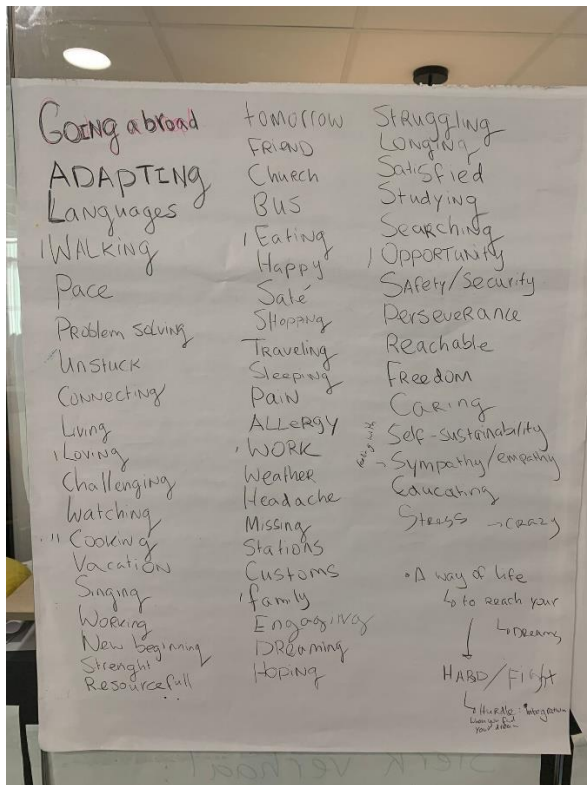 GOING abroad
ADAPTING
Languages
WALKING
Pace
Problem solving
Unstuck
Connecting
Living
Loving
Challenging
Watching
Cooking
Vacation
Singing
Working
New beginning
Strenght
Resourcefull
tomorrow
FRIEND
Church
BUS
Eating
Happy
Saté
Shopping
Traveling
Sleeping
Pain
ALLERGY
WORK
Weather
Headache
Missing
Stations
Customs
family
Engaging
DReaming
Hoping
STRuggling
Longing
Satisfied
Studying
Searching
OPPORTUNITY
SAfety/Security
PerseveRance
Reachable
FReedom
Caring
Self-sustainability
Sympathy/empathy
Educating
Stress → crazy
• A way of life
↳ to reach your
↳ DReams
HARD/FIGHT
↳ HuRdle: Integration
when you find
your dream
sterk verhaal!